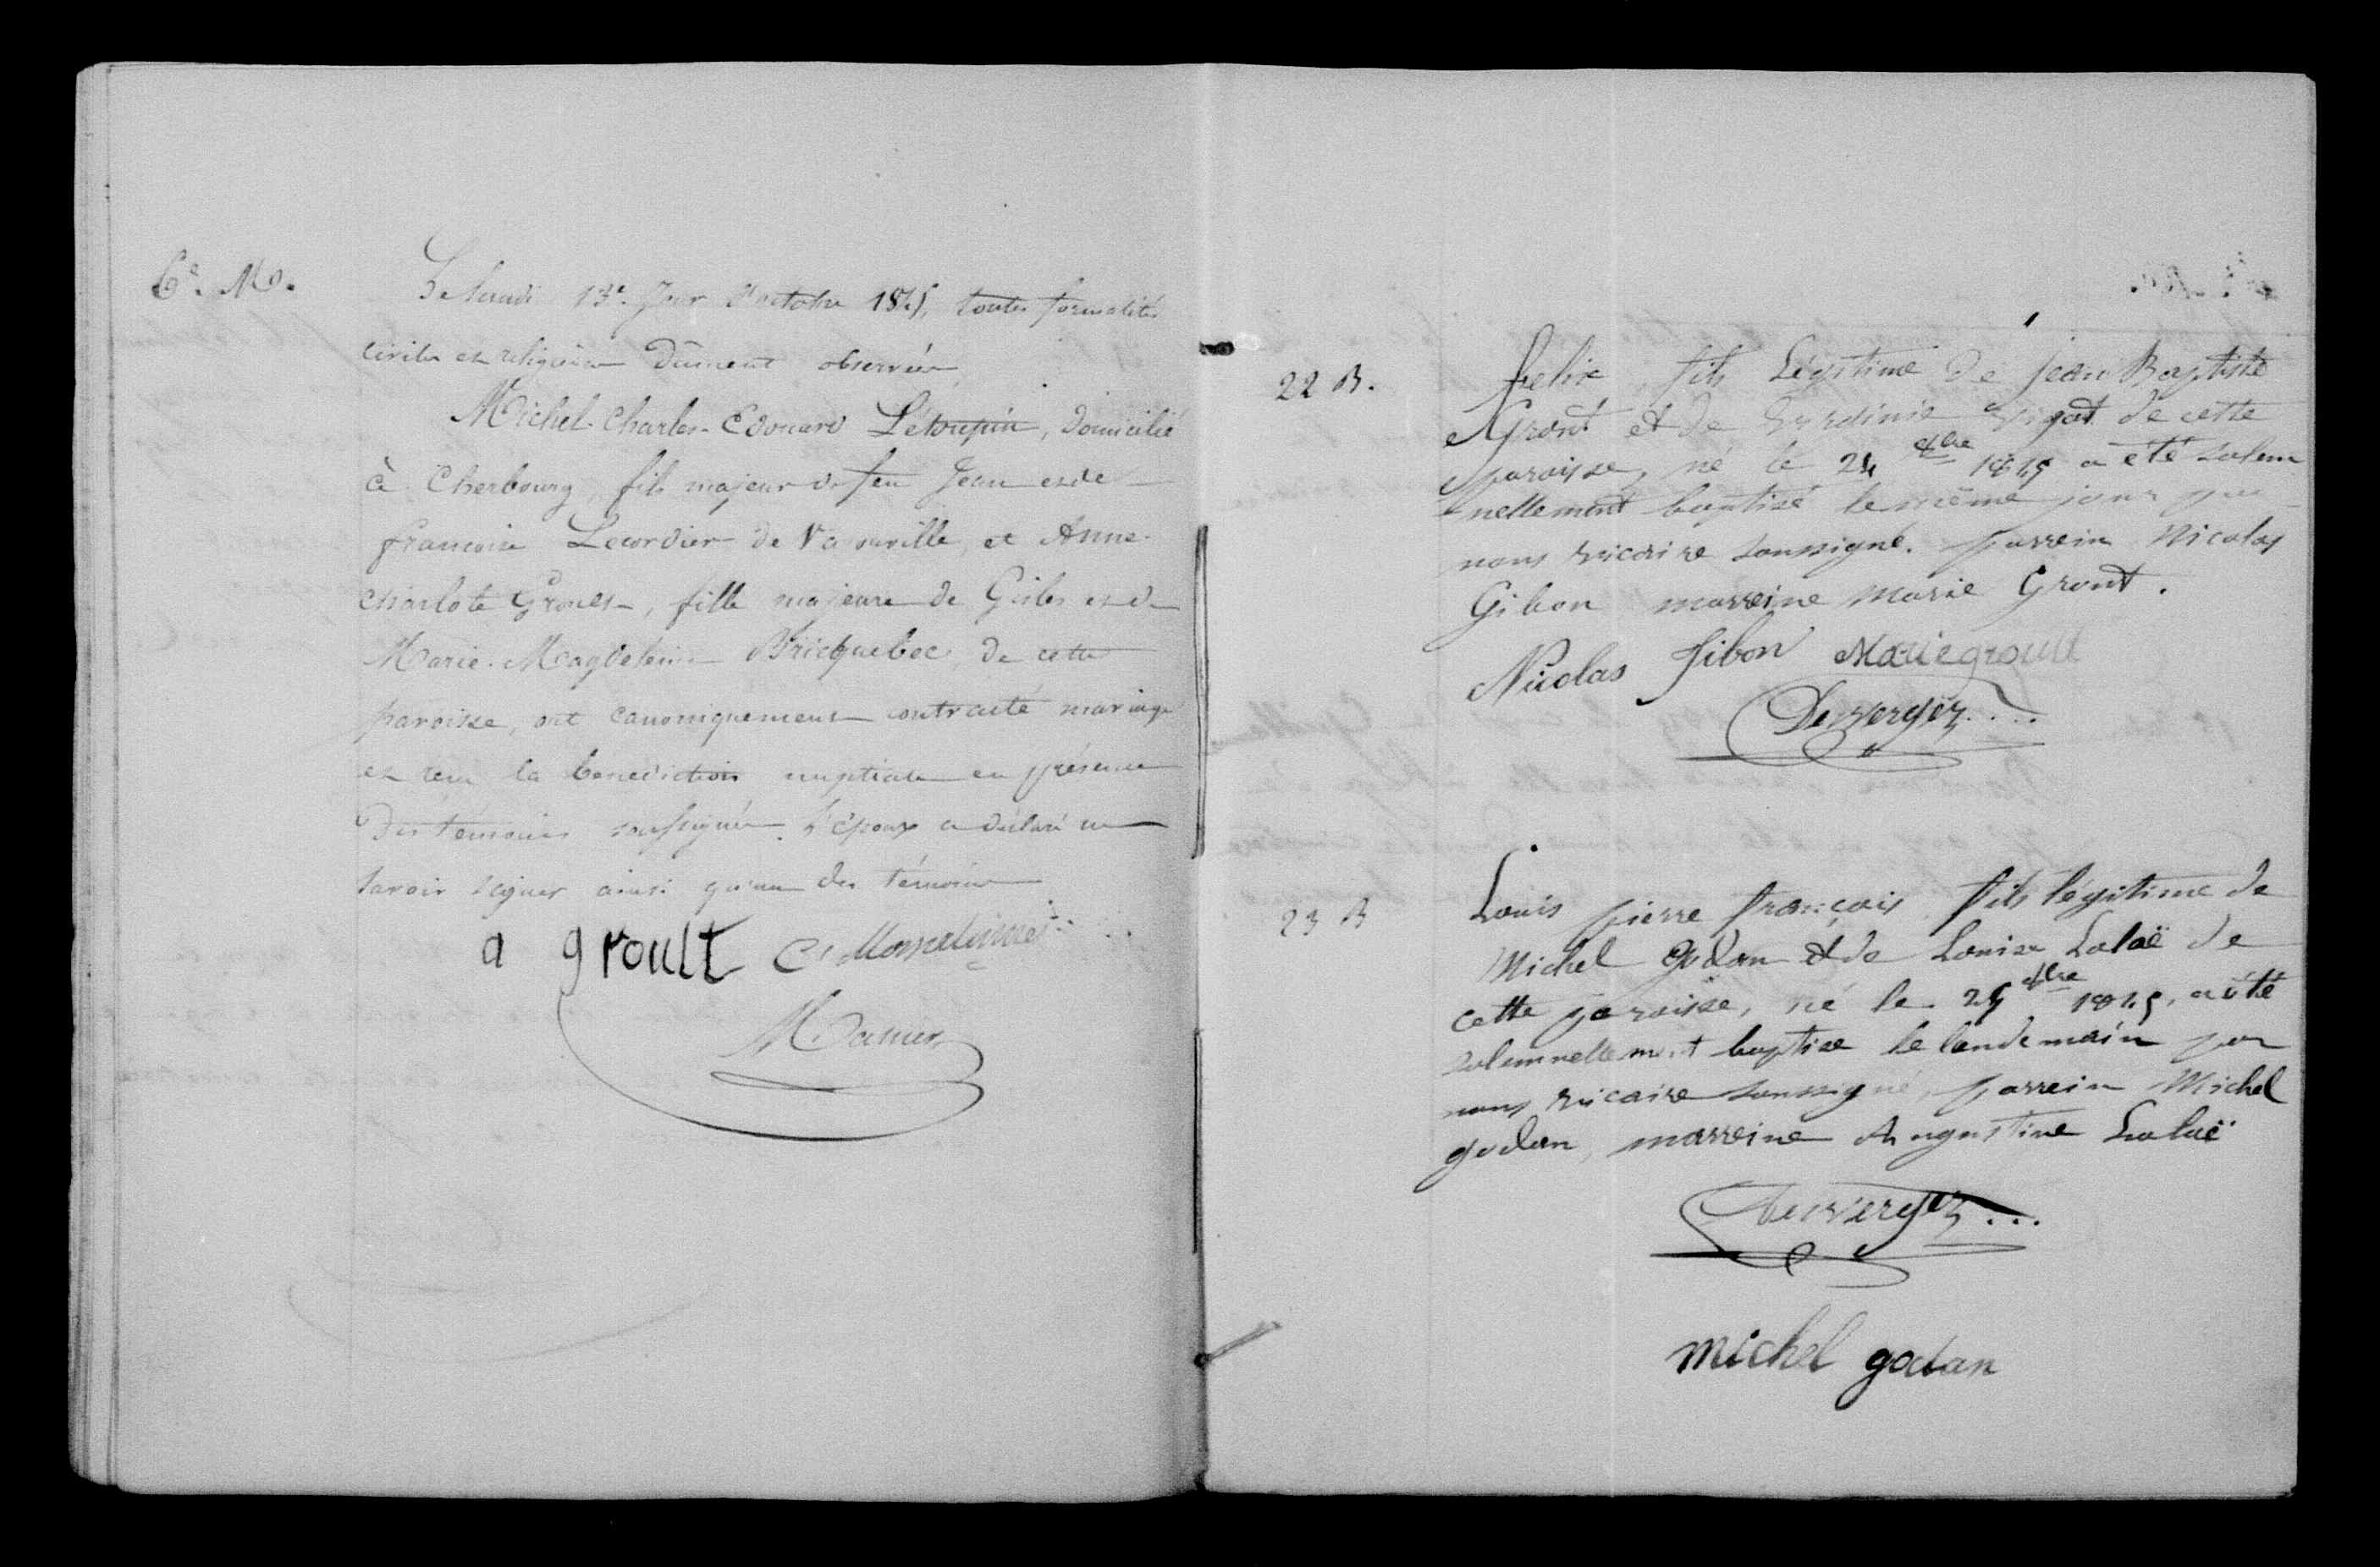 6e. M.
Le lundi 13e. jour d'octobre 1845, toutes formalités
civiles et religieuses dûment observées,
Michel-Charles-Edouard Létoupin, domicilié
à Cherbourg, fils majeur de feu Jean et de
francoise Lecordier de Vauville, et Anne
charlote Groult, fille majeure de Gilles et de
Marie-Magdeleine Bricquebec, de cette
paroisse, ont canoniquement contracté mariage
et reçu la bénédiction nuptiale en présence
des témoins soussignés. L'époux a déclaré ne
savoir signer ainsi qu'un des témoins
a groult
Hamer
22 B.
felix, fils Légitime de jean Baptiste
Grout et de Vigot de cette
paroisse, né le 24 8bre 1845 a été solem
nellement baptisé le même jour par
nous vicaire soussigné. parrein Nicolas
Gibon marreine marie Grout.
Nicolas Gibon Marie groult
Duvergez
23 B
Louis pierre françois fils légitime de
Michel Godan et de Louise Lalaë de
cette paroisse, né le 25 8bre 1845, a été
solemnellement baptise le lendemain par
nous vicaire soussigné, parrein Michel
godan, marreine Augustine Lalaë
Duvergez
michel godan